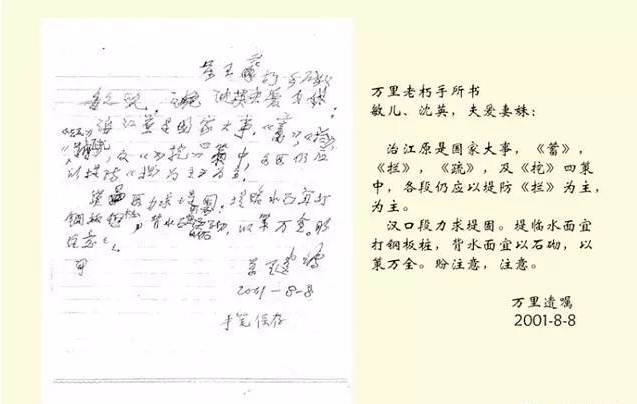 万里老朽手所书
敏儿、沈英夫爱妻妹:
治江原是国家大事,《蓄》《拦》
《疏》,及《挖》四策中,各段仍应
以堤防《拦》为主为主。
汉口段力求堤固。堤临水面宜打
钢板桩,背水面宜以石砌,以策万全。盼
注意,
万里遗嘱
2001-8-8
万里老朽手所书
敏儿、沈英,夫爱妻妹:
治江原是国家大事,《蓄》、
《拦》,《疏》,及《挖》四策
中,各段仍应以堤防《拦》为主,
为主。
汉口段力求堤固。堤临水面宜
打钢板桩,背水面宜以石砌,以
策万全。盼注意,注意。
万里遗嘱
2001-8-8